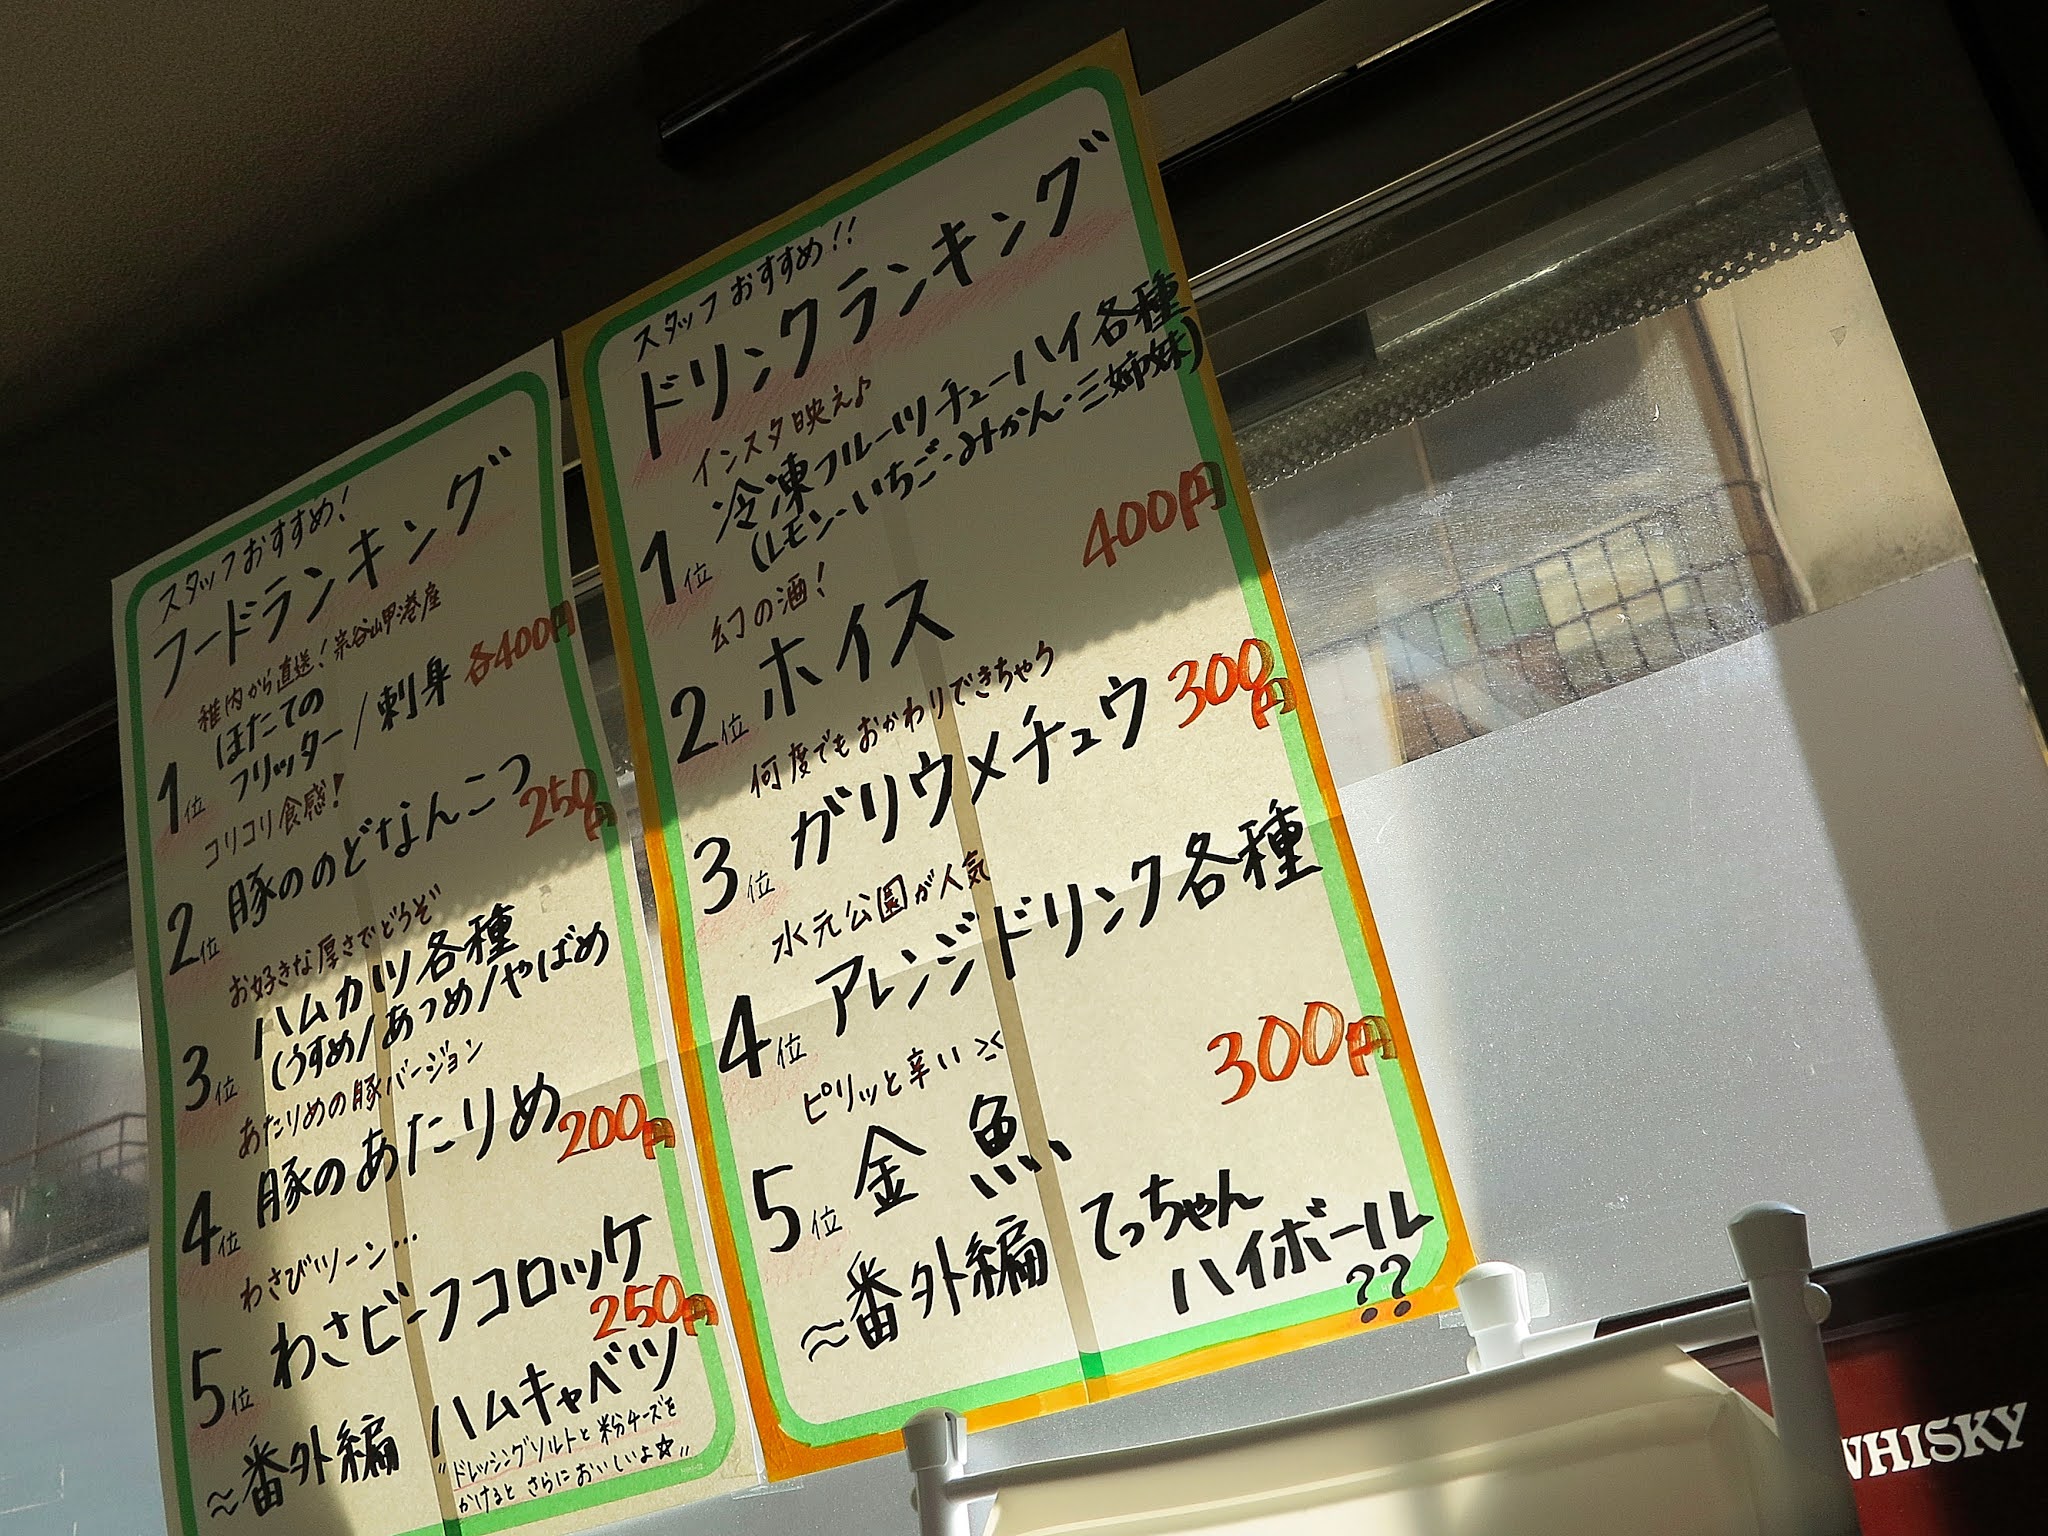 スタッフおすすめ!
フードランキング
稚内から直送!宗谷岬港産
1位 ほたての
フリッター/刺身 各400円
コリコリ食感!
2位 豚ののどなんこつ 250円
お好きな厚さでどうぞ
3位 ハムカツ各種
(うすめ/あつめ/やばめ
あたりめの豚バージョン
4位 豚のあたりめ 200円
わさびツーン…
5位 わさビーフコロッケ 250円
~番外編 ハムキャベツ
"ドレッシングソルトと粉チーズを
かけると さらにおいしいよ☆"
スタッフおすすめ!!
ドリンクランキング
インスタ映え♪
1位 冷凍フルーツチューハイ各種
(レモン・いちご・みかん・三姉妹)
400円
幻の酒!
2位 ホイス
何度でもおかわりできちゃう
3位 ガリウメチュウ 300円
水元公園が人気
4位 アレンジドリンク各種
300円
ピリッと辛い
5位 金魚
~番外編 てっちゃん
ハイボール
??
WHISKY